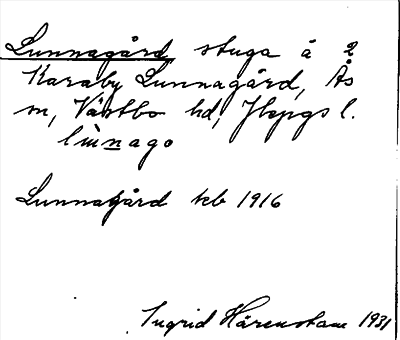 Lunnagård, stuga å 2
Karaby Lunnagård, Ås
sn, Västbo hd, Jkpgs l.
lùnago
Lunnagård kb 1916
Ingrid Härenstam 1931